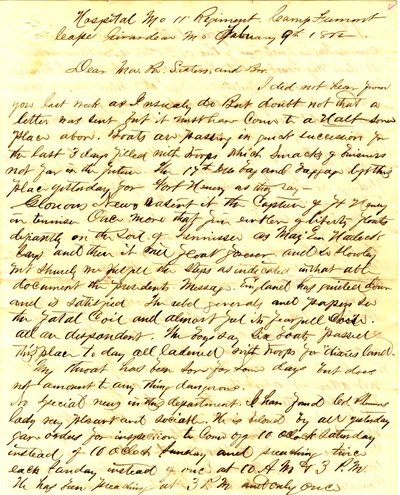 Hospital Mo 11th Regiment. Camp Fremont
Cape Girardeau Mo February 9th 1862
Dear Ma. Pa. Sisters, and Bro.
I did not hear from
you last week as I usualy do But doubt not that a
letter was sent but it must have come to a Halt some
place above. Boats are passing in quick succession for
the last 3 days filled with troops which smacks of business
not far in the future. The 17th Ills Reg and Baggage left this
place yesterday for Fort Henry as they say —
Glorious News isnt it the Capture of Ft Henry
in tennisee Once more that emblem of liberty floats
defiantly on the Soil of Tennissee as Maj Gen Haleck
Says and there it will float forever and
the steps as indicated in that able
document the presidents Message. England has quieted down
and is satisfied. The rebel generals and papers see
the fatal Coil and almost feel its fearfull
all are despondent. The boys say Six boats passed
this place to day all ladened with troops for "Dixies land".
My throat has been sore for some days but does
not amount to any thing dangerous.
No special news in this department. I have found
lady very pleasant and sociable. He is liked by all yesterday
gave orders for inspection to come off 10 oclock Saturday
instead of 10 oclock Sunday and preaching twice
each Sunday instead of once at 10 A.M & 3 P.M.
He has been preaching at 3 P.M and only once